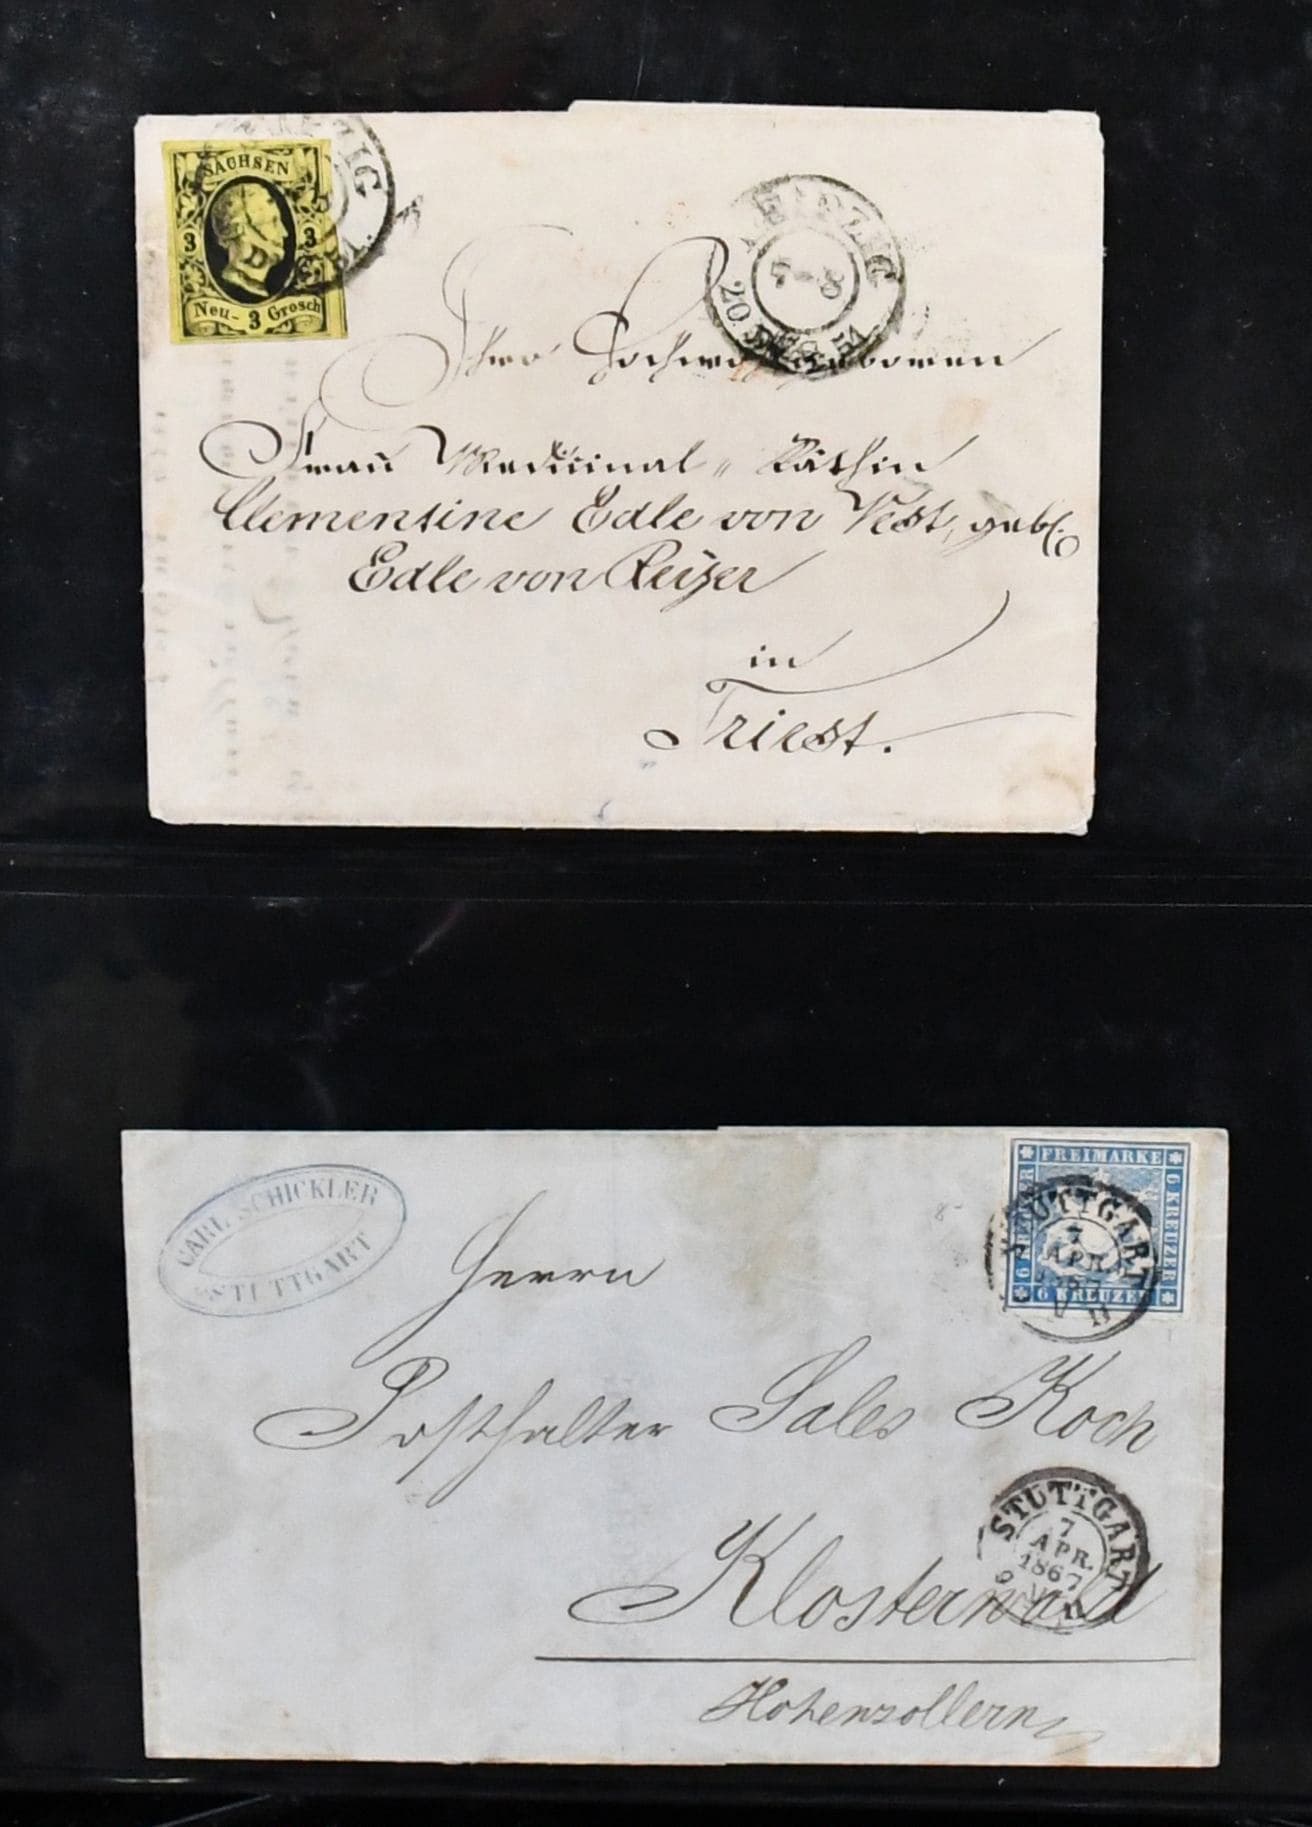 SACHSEN
3 3
Neu- 3 Grosch
LEIPZIG
7-8
20
51
Ihro Hochwohlgeboren
Frau Medicinal Räthin
Clementine Edle von Vest, gebr.
Edle von Reizer
in
Triest.
CARL SCHICKLER
STUTTGART
FREIMARKE
6 KREUZER
6 KREUZER
6 KREUZER
STUTTGART
7
APR.
1867
Herrn
Posthalter Sales Koch
STUTTGART
7
APR.
1867
Klosterwald
Hohenzollern